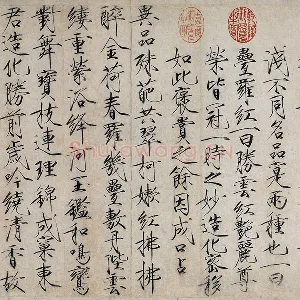 淺不同名品實兩種也一曰
疊羅紅一曰勝雲紅艷麗尊
榮皆冠一時之妙造化密移
如此褒賞之餘因成口占
異品殊葩共翠柯嫩紅拂拂
醉金荷春羅幾疊敷丹陛雲
縷重縈浴絳河玉鑑和鳴鸞
對舞寶枝連理錦成窠東
君造化勝前歲吟繞清香故